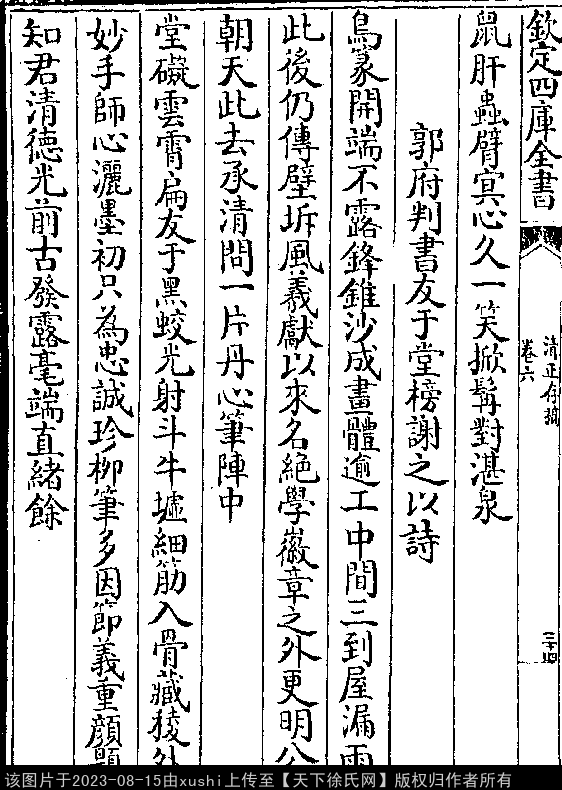 欽定四庫全書
清正存稿
卷六
三十四
鼠肝蟲臂寘心久一笑掀髯對湛泉
郭府判書友于堂榜謝之以詩
鳥篆開端不露鋒錐沙成畫體逾工中間三到屋漏雨
此後仍傳壁坼風義獻以來名絶學徽章之外更明公
朝天此去承清問一片丹心筆陣中
堂礙雲霄扁友于黑蛟光射斗牛墟細筋入骨藏稜外
妙手師心灑墨初只為忠誠珍柳筆多因節義重顔
知君清德光前古發露毫端直緒餘
该图片于2023-08-15由xushi上传至【天下徐氏网】版权归作者所有